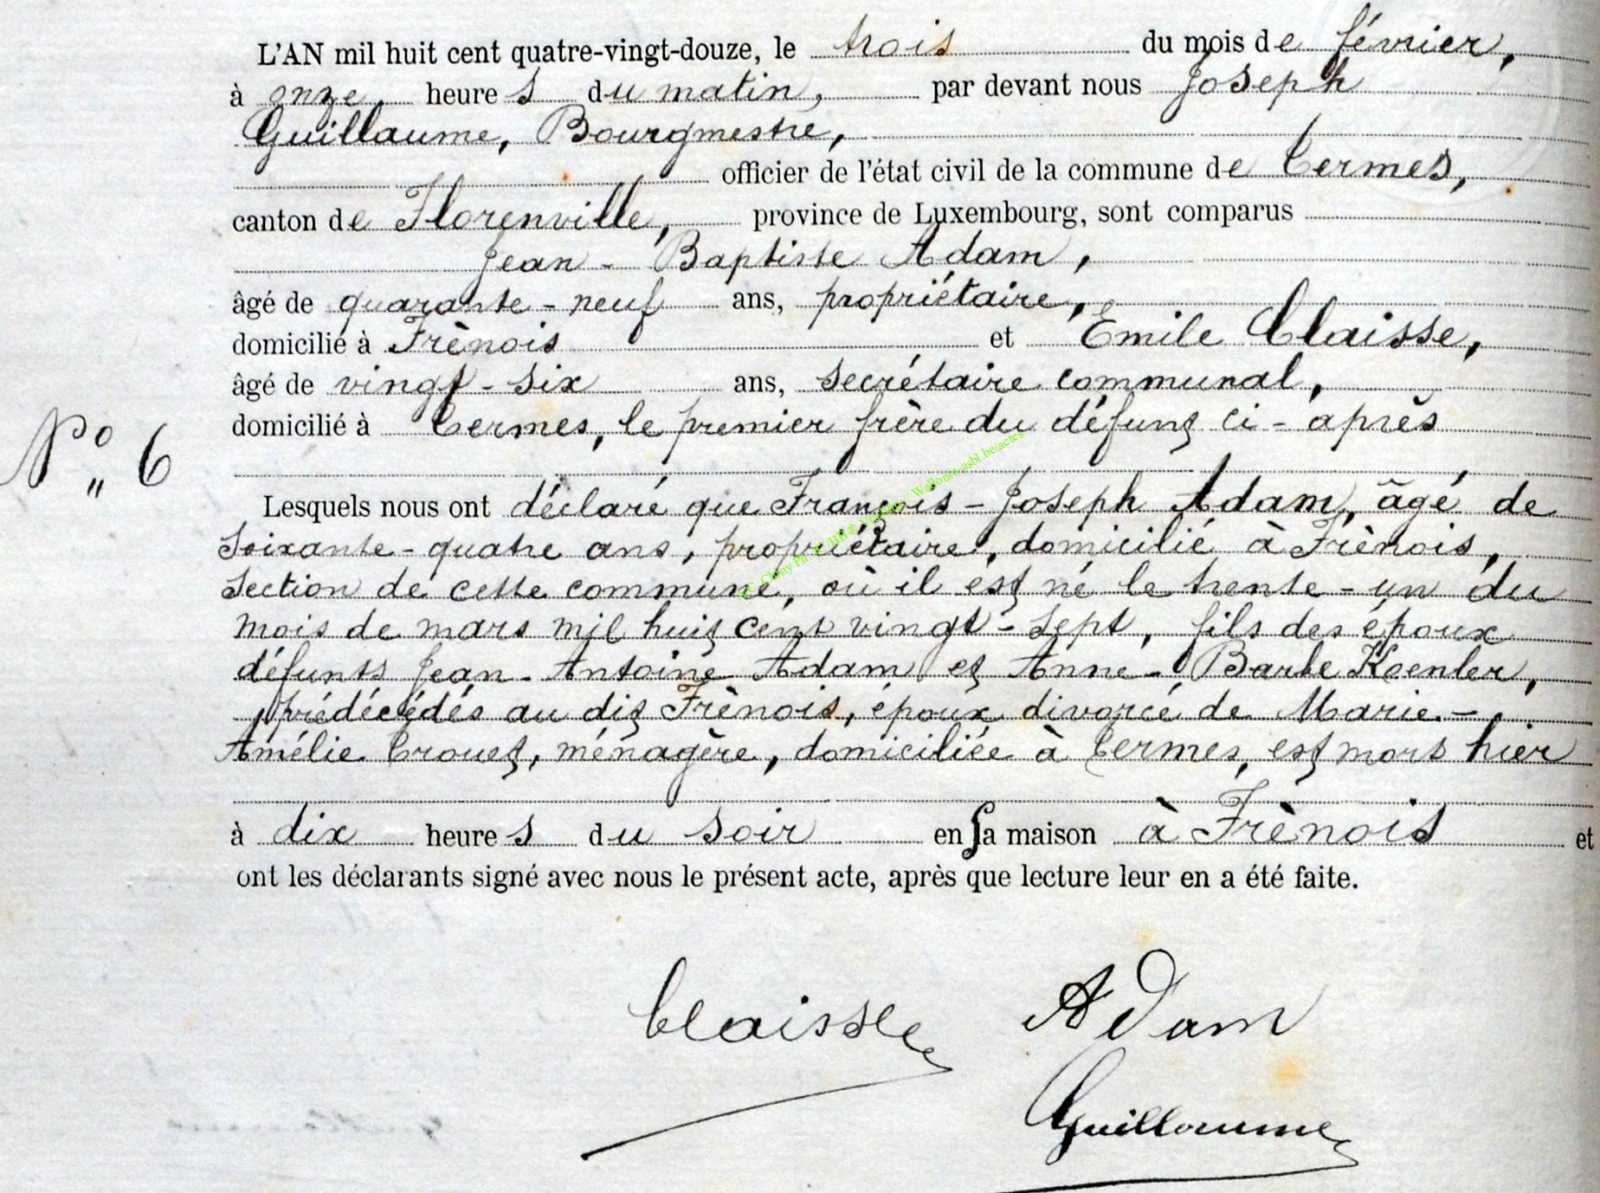 L'AN mil huit cent quatre-vingt-douze, le trois du mois de février,
à onze heures du matin, par devant nous Joseph
Guillaume, Bourgmestre,
officier de l'état civil de la commune de Termes,
canton de Florenville, province de Luxembourg, sont comparus
Jean-Baptiste Adam,
âgé de quarante-neuf ans, propriétaire,
domicilié à Frènois et Émile Claisse,
âgé de vingt-six ans, secrétaire communal,
domicilié à Termes, le premier frère du défunt ci-après
N° 6
Lesquels nous ont déclaré que François-Joseph Adam, âgé de
soixante-quatre ans, propriétaire, domicilié à Frènois,
section de cette commune, où il est né le trente-un du
mois de mars mil huit cent vingt-sept, fils des époux
défunts Jean-Antoine Adam et Anne-Barbe Koenler,
prédécédés au dit Frènois, époux divorcé de Marie-
Amélie Crouet, ménagère, domiciliée à Termes, est mort hier
à dix heures du soir en sa maison à Frènois et
ont les déclarants signé avec nous le présent acte, après que lecture leur en a été faite.
Claisse Adam
Guillaume